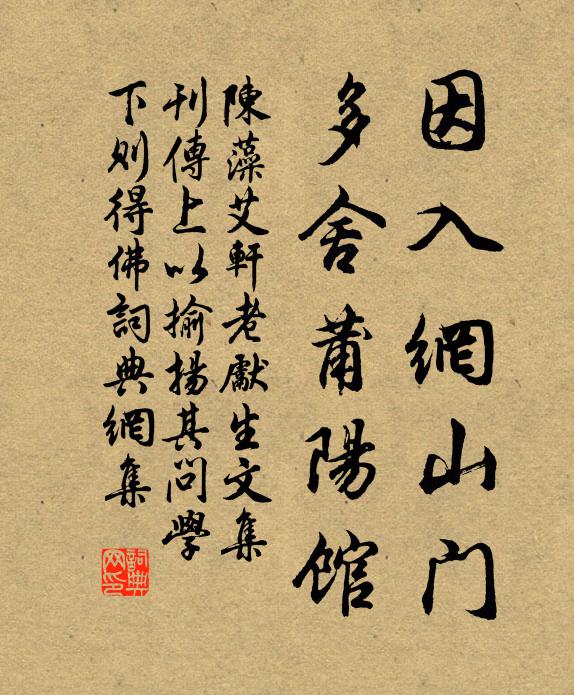 因入網山门
多舍莆陽館
陳藻艾軒老獻生文集
刊傳上以揄揚其问學
下则得佛詞典網集
詞典网印